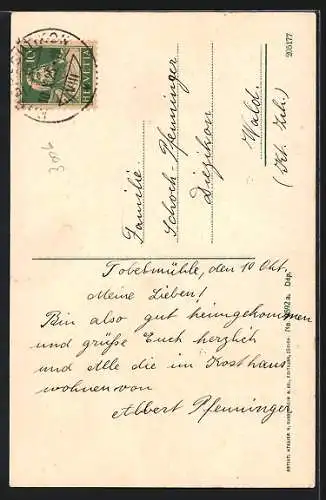 Familie
Schoch-Pfenninger
Diezikon
Wald.
(Kt. Zch.)
205177
HELVETIA
10
386
Tobelmühle, den 10 Okt.
Meine Lieben!
Bin also gut heimgekommen
und grüße Euch herzlich
und Alle die im Kosthaus
wohnen von
Albert Pfenninger
Dép.